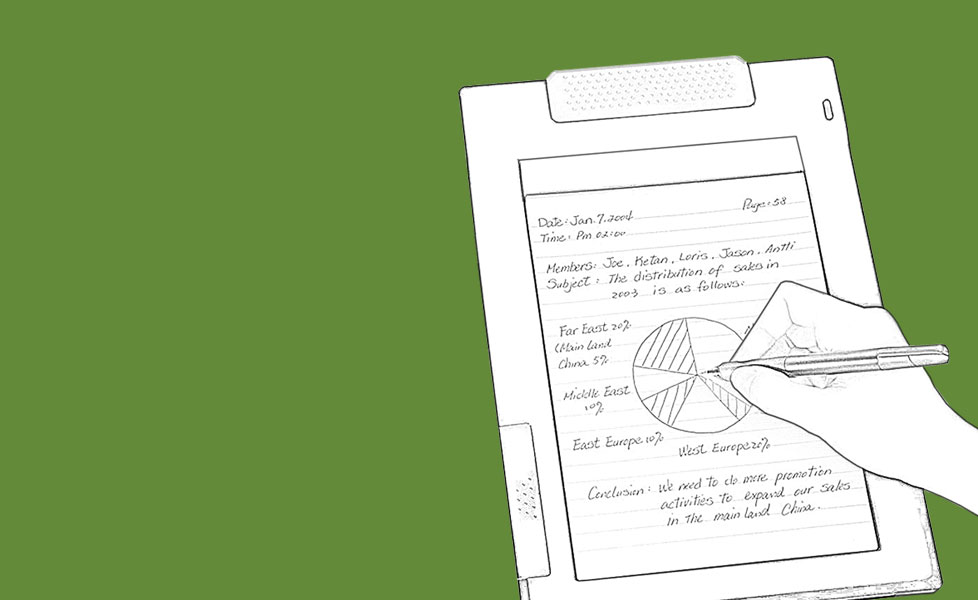 Date: Jan.7.2004
Page: 58
Time: Pm 02:00
Members: Joe, Ketan, Loris, Jason, Antti
Subject: The distribution of sales in
2003 is as follows:
Far East 20%
(Main land
China 5%
Middle East
10%
East Europe 10%
West Europe 20%
Conclusion: We need to do more promotion
activities to expand our sales
in the main land China.